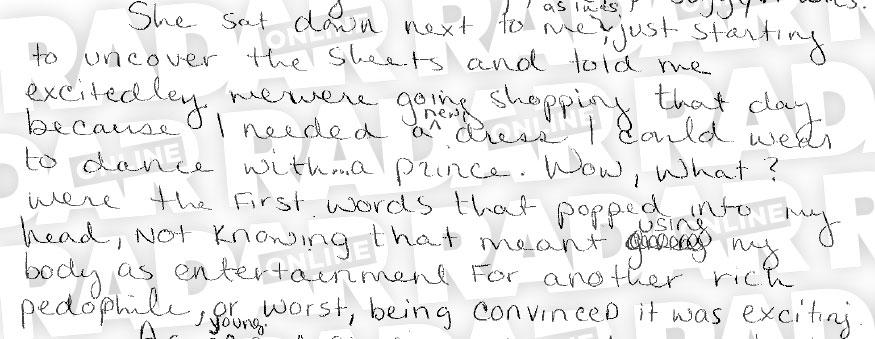 She sat down next to me, just starting
to uncover the sheets and told me
excitedley wewere going shopping that day
because I needed a new dress I could wear
to dance with...a prince. Wow, What?
were the first words that popped into my
head, Not Knowing that meant using my
body as entertainment For another rich
pedophile, or worst, being convinced it was exciting.
young
RADAR ONLINE